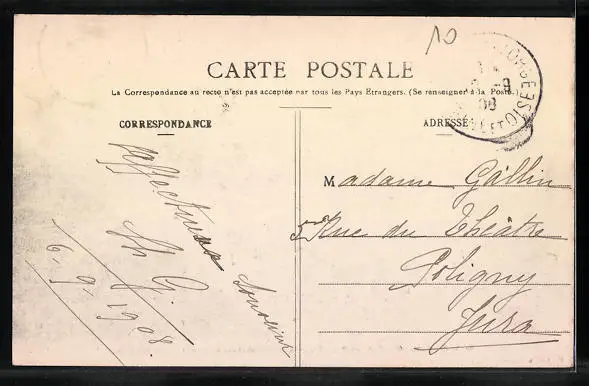 10
CARTE POSTALE
La Correspondance au recto n'est pas acceptée par tous les Pays Etrangers. (Se renseigner à la Poste.)
CORRESPONDANCE
ADRESSE
ORGE
08
ET OISE
Affectueux Souvenir
Th G.
6. 9. 1908
Madame Gallin
5 Rue du Théâtre
Poligny
Jura